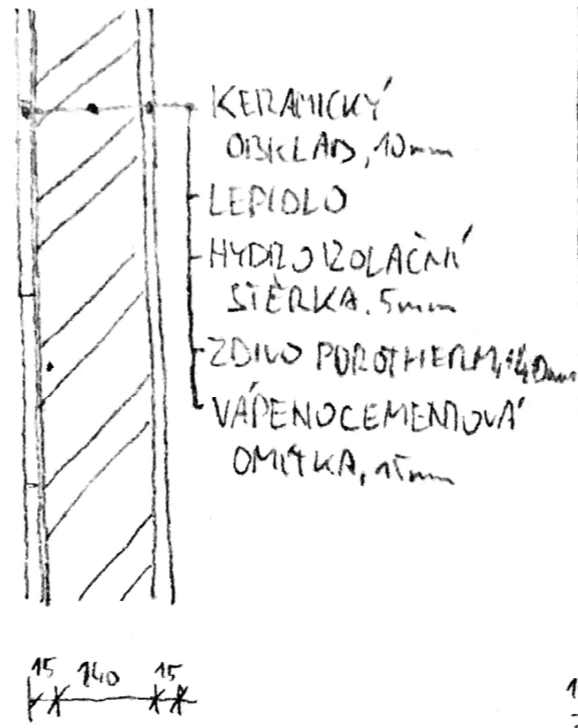 KERAMICKÝ
OBKLAD, 10mm
LEPIDLO
HYDROIZOLAČNÍ
STĚRKA. 5mm
ZDIVO POROTHERM, 140mm
VÁPENOCEMENTOVÁ
OMÍTKA, 15mm
15 140 15